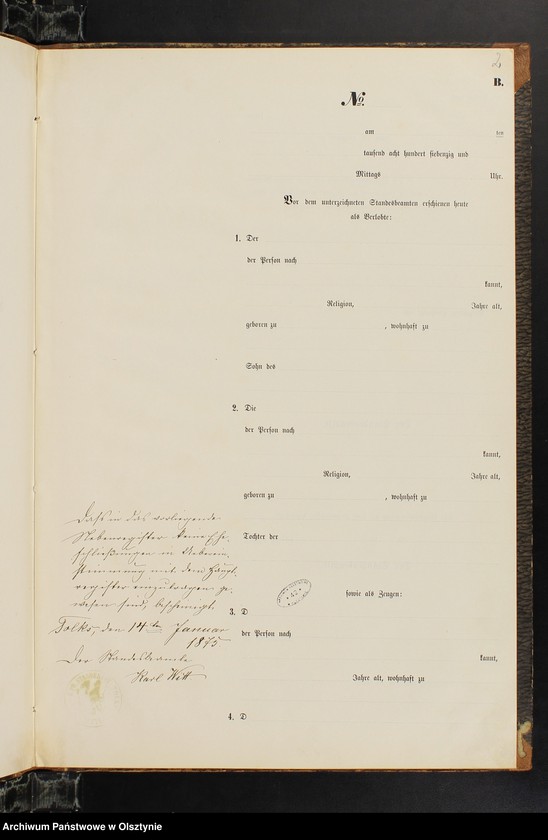 2.
B.
No.
am den
tausend acht hundert siebenzig und
Mittags Uhr.
Vor dem unterzeichneten Standesbeamten erschienen heute
als Verlobte:
1. Der
der Person nach
kannt,
Religion, Jahre alt,
geboren zu , wohnhaft zu
Sohn des
2. Die
der Person nach
kannt,
Religion, Jahre alt,
geboren zu , wohnhaft zu
Tochter der
sowie als Zeugen:
3. D
der Person nach
kannt,
Jahre alt, wohnhaft zu
4. D
Daß in das vorliegende
Nebenregister keine Ehe-
schließungen in Ueberein-
stimmung mit dem Haupt-
register einzutragen ge-
wesen sind, bescheinigt.
Tolks, den 14ten Januar
1875
Der Standesbeamte
Karl Witt
Archiwum Państwowe w Olsztynie